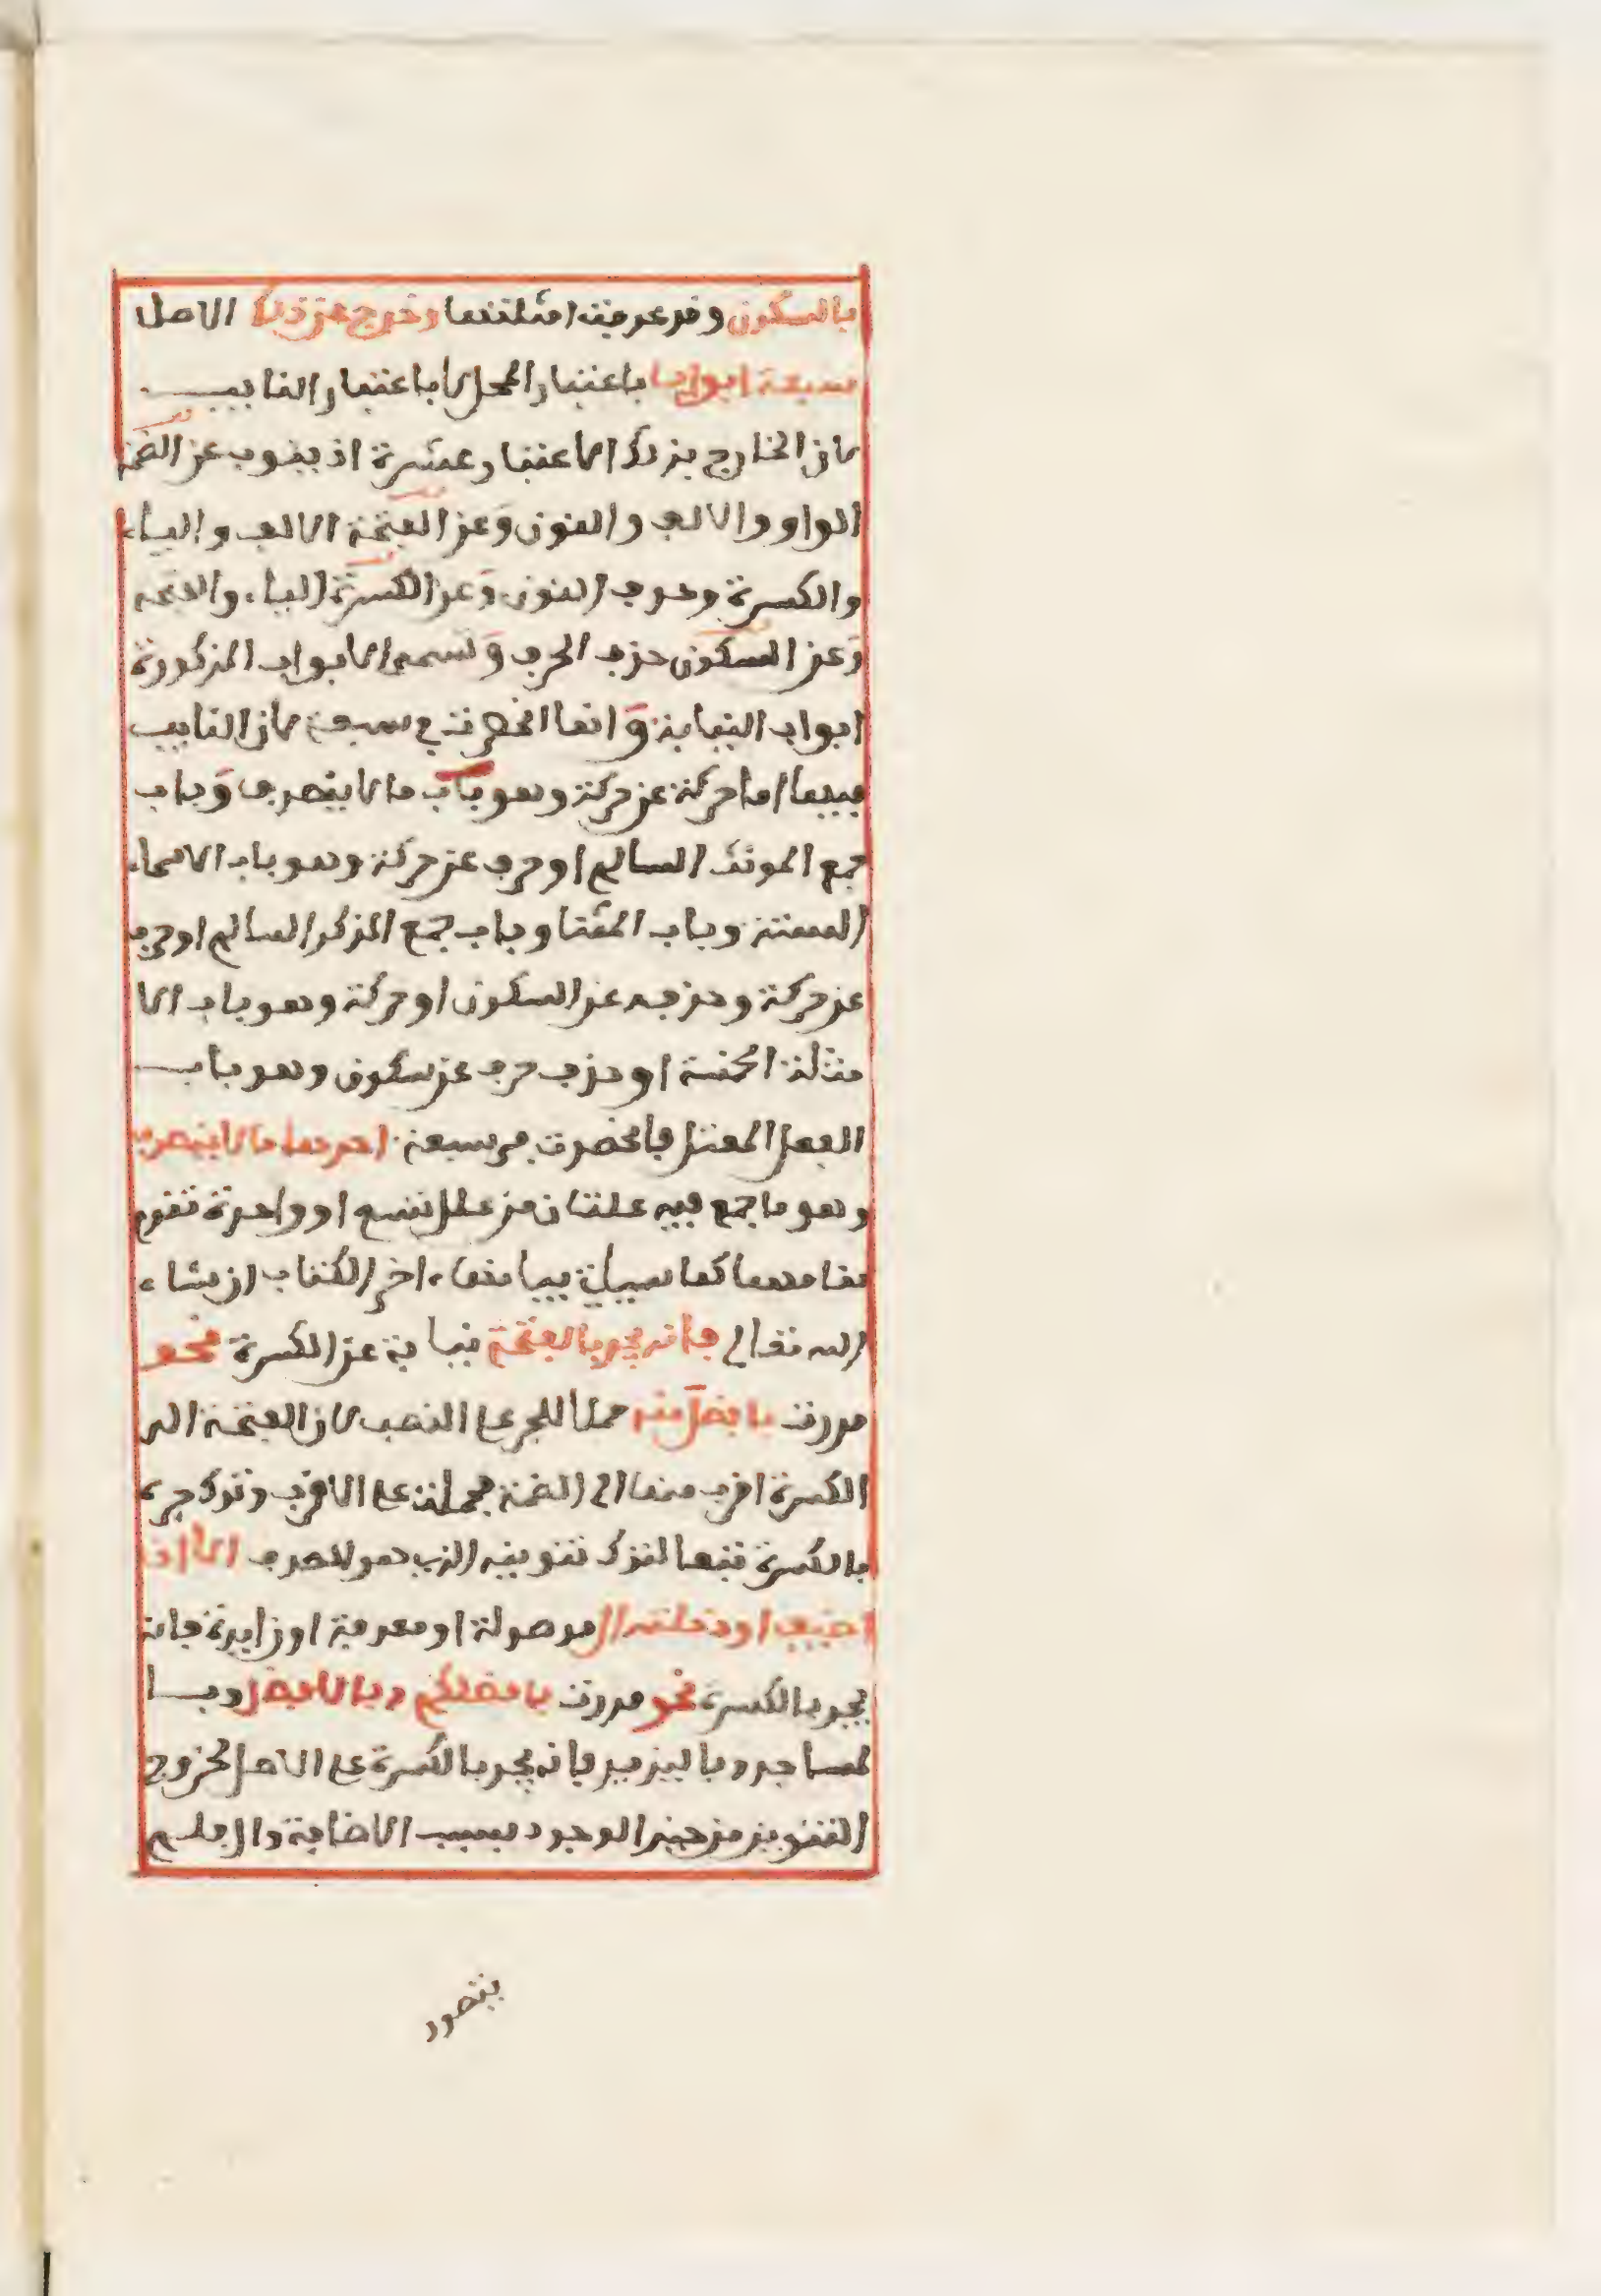 بالسكون وقد عرفت امثلتها وخرج عن ذلك الاصل
سبعة ابواب باعتبار المحل لا باعتبار النايب
لان الخارج بذلك الاعتبار عشرة اذ ينوب عن الضمة
الواو والالف والنون وعن الفتحة الالف والياء
والكسرة وحذف النون وعن الكسرة الياء والفتحة
وعن السكون حذف الحرف وتسمى الابواب المذكورة
ابواب النيابة وانما انحصرت في سبعة لان النايب
فيها اما حركة عن حركة وهو باب ما لا ينصرف وباب
جمع المونث السالم او حرف عن حركة وهو باب الاسماء
الستة وباب المثنا وباب جمع المذكر السالم او حرف
عن حركة وحذفه عن السكون او حركة وهو باب الا
مثلة الخمسة او حذف حرف عن سكون وهو باب
الفعل المعتل فانحصرت في سبعة احدها ما لا ينصرف
وهو ما جمع فيه علتان من علل تسع او واحدة تقوم
مقامهما كما سياتي بيانها اخر الكتاب ان شاء
الله تعالى فانه يجر بالفتحة نيابة عن الكسرة نحو
مررت بافضل منه حملا للجر على النصب لان الفتحة الى
الكسرة اقرب منها الى الضمة فحملت على الاقرب وترك جره
بالكسرة تبعا لترك تنوينه الذي هو الصرف الا ان
اضيف او دخلته ال موصولة او معرفة او زايدة فانه
يجر بالكسرة نحو مررت بافضلكم وبالافضل وبا
لمساجد وباليزيد فانه يجر بالكسرة على الاصل لخروج
التنوين من حيز الوجود بسبب الاضافة وال فلم
يتصور